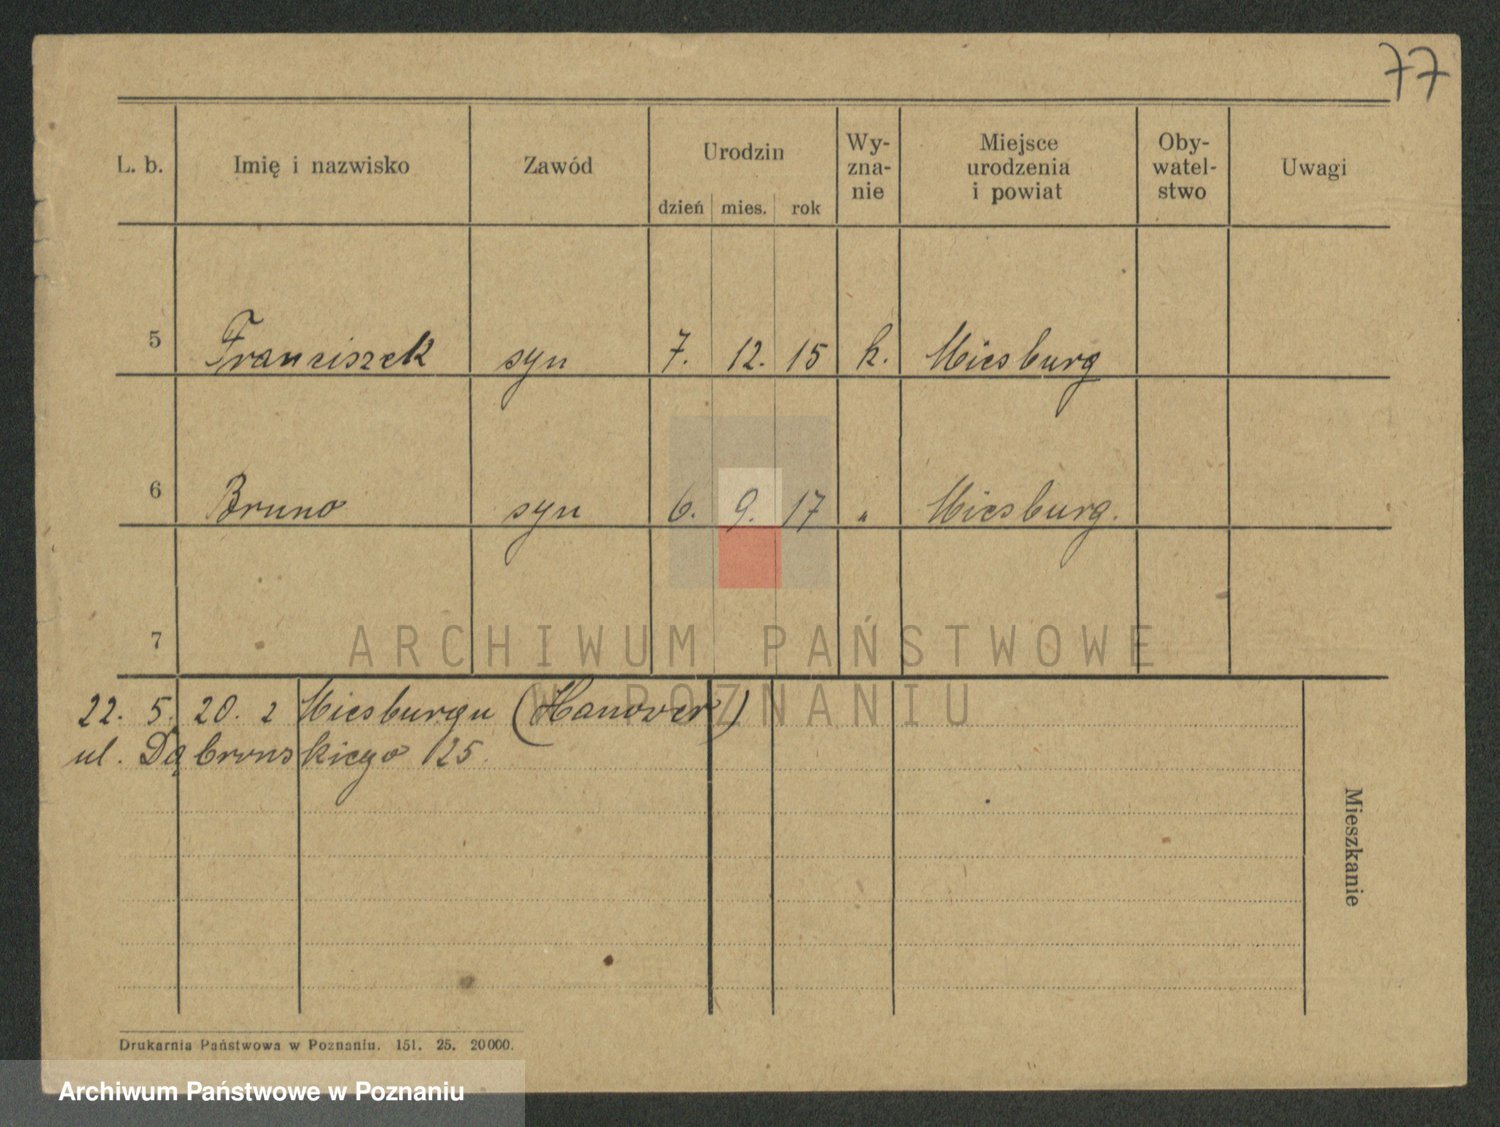 77
L. b. Imię i nazwisko Zawód Urodzin Wy-zna-nie Miejsce urodzenia i powiat Oby-watel-stwo Uwagi
dzień mies. rok
5 Franciszek syn 7. 12. 15 k. Miesburg
6 Bruno syn 6. 9. 17 " Miesburg.
7
ARCHIWUM PAŃSTWOWE
W POZNANIU
22. 5. 20. z Miesburgu (Hanover)
ul. Dąbrowskiego 125.
Mieszkanie
Drukarnia Państwowa w Poznaniu. 151. 25. 20000.
Archiwum Państwowe w Poznaniu